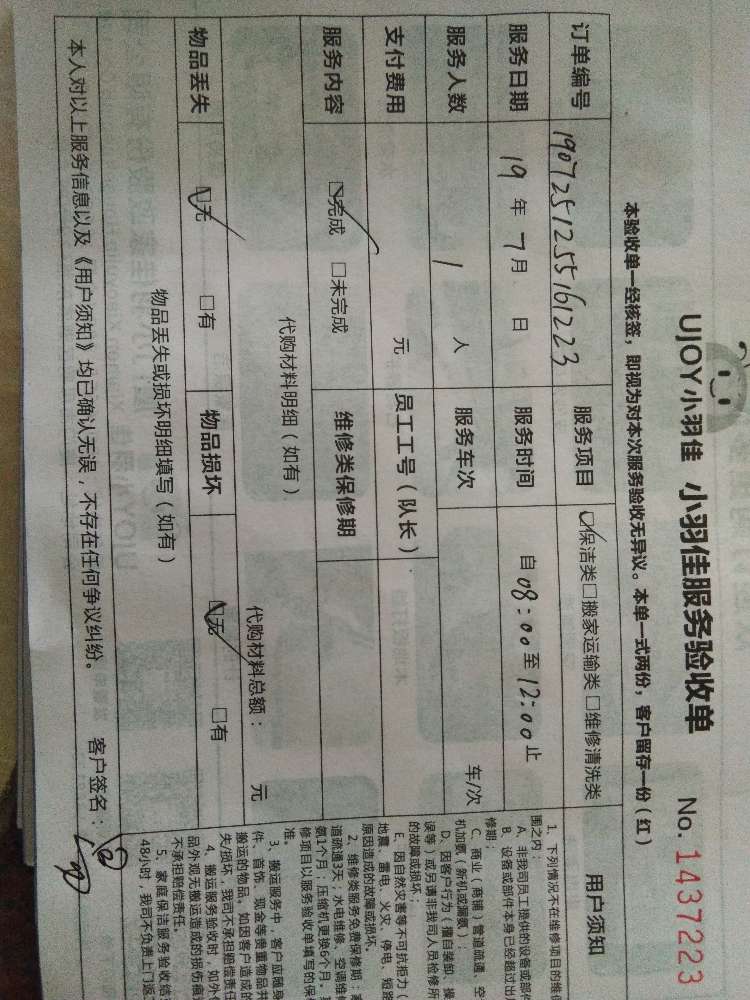 UJOY小羽佳 小羽佳服务验收单 No. 1437223
本验收单一经核签，即视为对本次服务验收无异议。本单一式两份，客户留存一份（红）
订单编号 190725125516 1223 服务项目 ☑保洁类□搬家运输类□维修清洗类
服务日期 19 年 7 月 日 服务时间 自 08:00 至 12:00 止
服务人数 1 人 服务车次 车/次
支付费用 元 员工工号（队长）
服务内容 ☑完成 □未完成 维修类保修期
代购材料明细（如有） 代购材料总额： 元
物品丢失 ☑无 □有 物品损坏 ☑无 □有
物品丢失或损坏明细填写（如有）
本人对以上服务信息以及《用户须知》均已确认无误，不存在任何争议纠纷。 客户签名：
用户须知
1、下列情况不在维修项目的维
围之内：
A、非我司员工提供的设备或部件
B、设备或部件本身已经超过出
修期；
C、商业（商铺）管道疏通、空
机加氨（新机或漏氨）；
D、因客户行为（擅自装卸、操
误等）或另请非我司人员检修所
的故障或损坏；
E、因自然灾害等不可抗拒力（
地震、雷电、火灾、停电、短路
原因造成的故障或损坏。
2、维修类服务免费保修期：
道疏通3天；水电维修、空调维
氨1个月；压缩机更换6个月，其
修项目以服务验收单填写的保
准。
3、搬运服务中，客户应随身
件、首饰、现金等贵重物品共
搬运的物品。如因客户造成的
失/损坏，我司不承担赔偿责任
4、搬运服务验收时，如外包
品外观无搬运造成的损伤痕
不承担赔偿责任。
5、家庭保洁服务验收信
48小时，我司不负责上门返